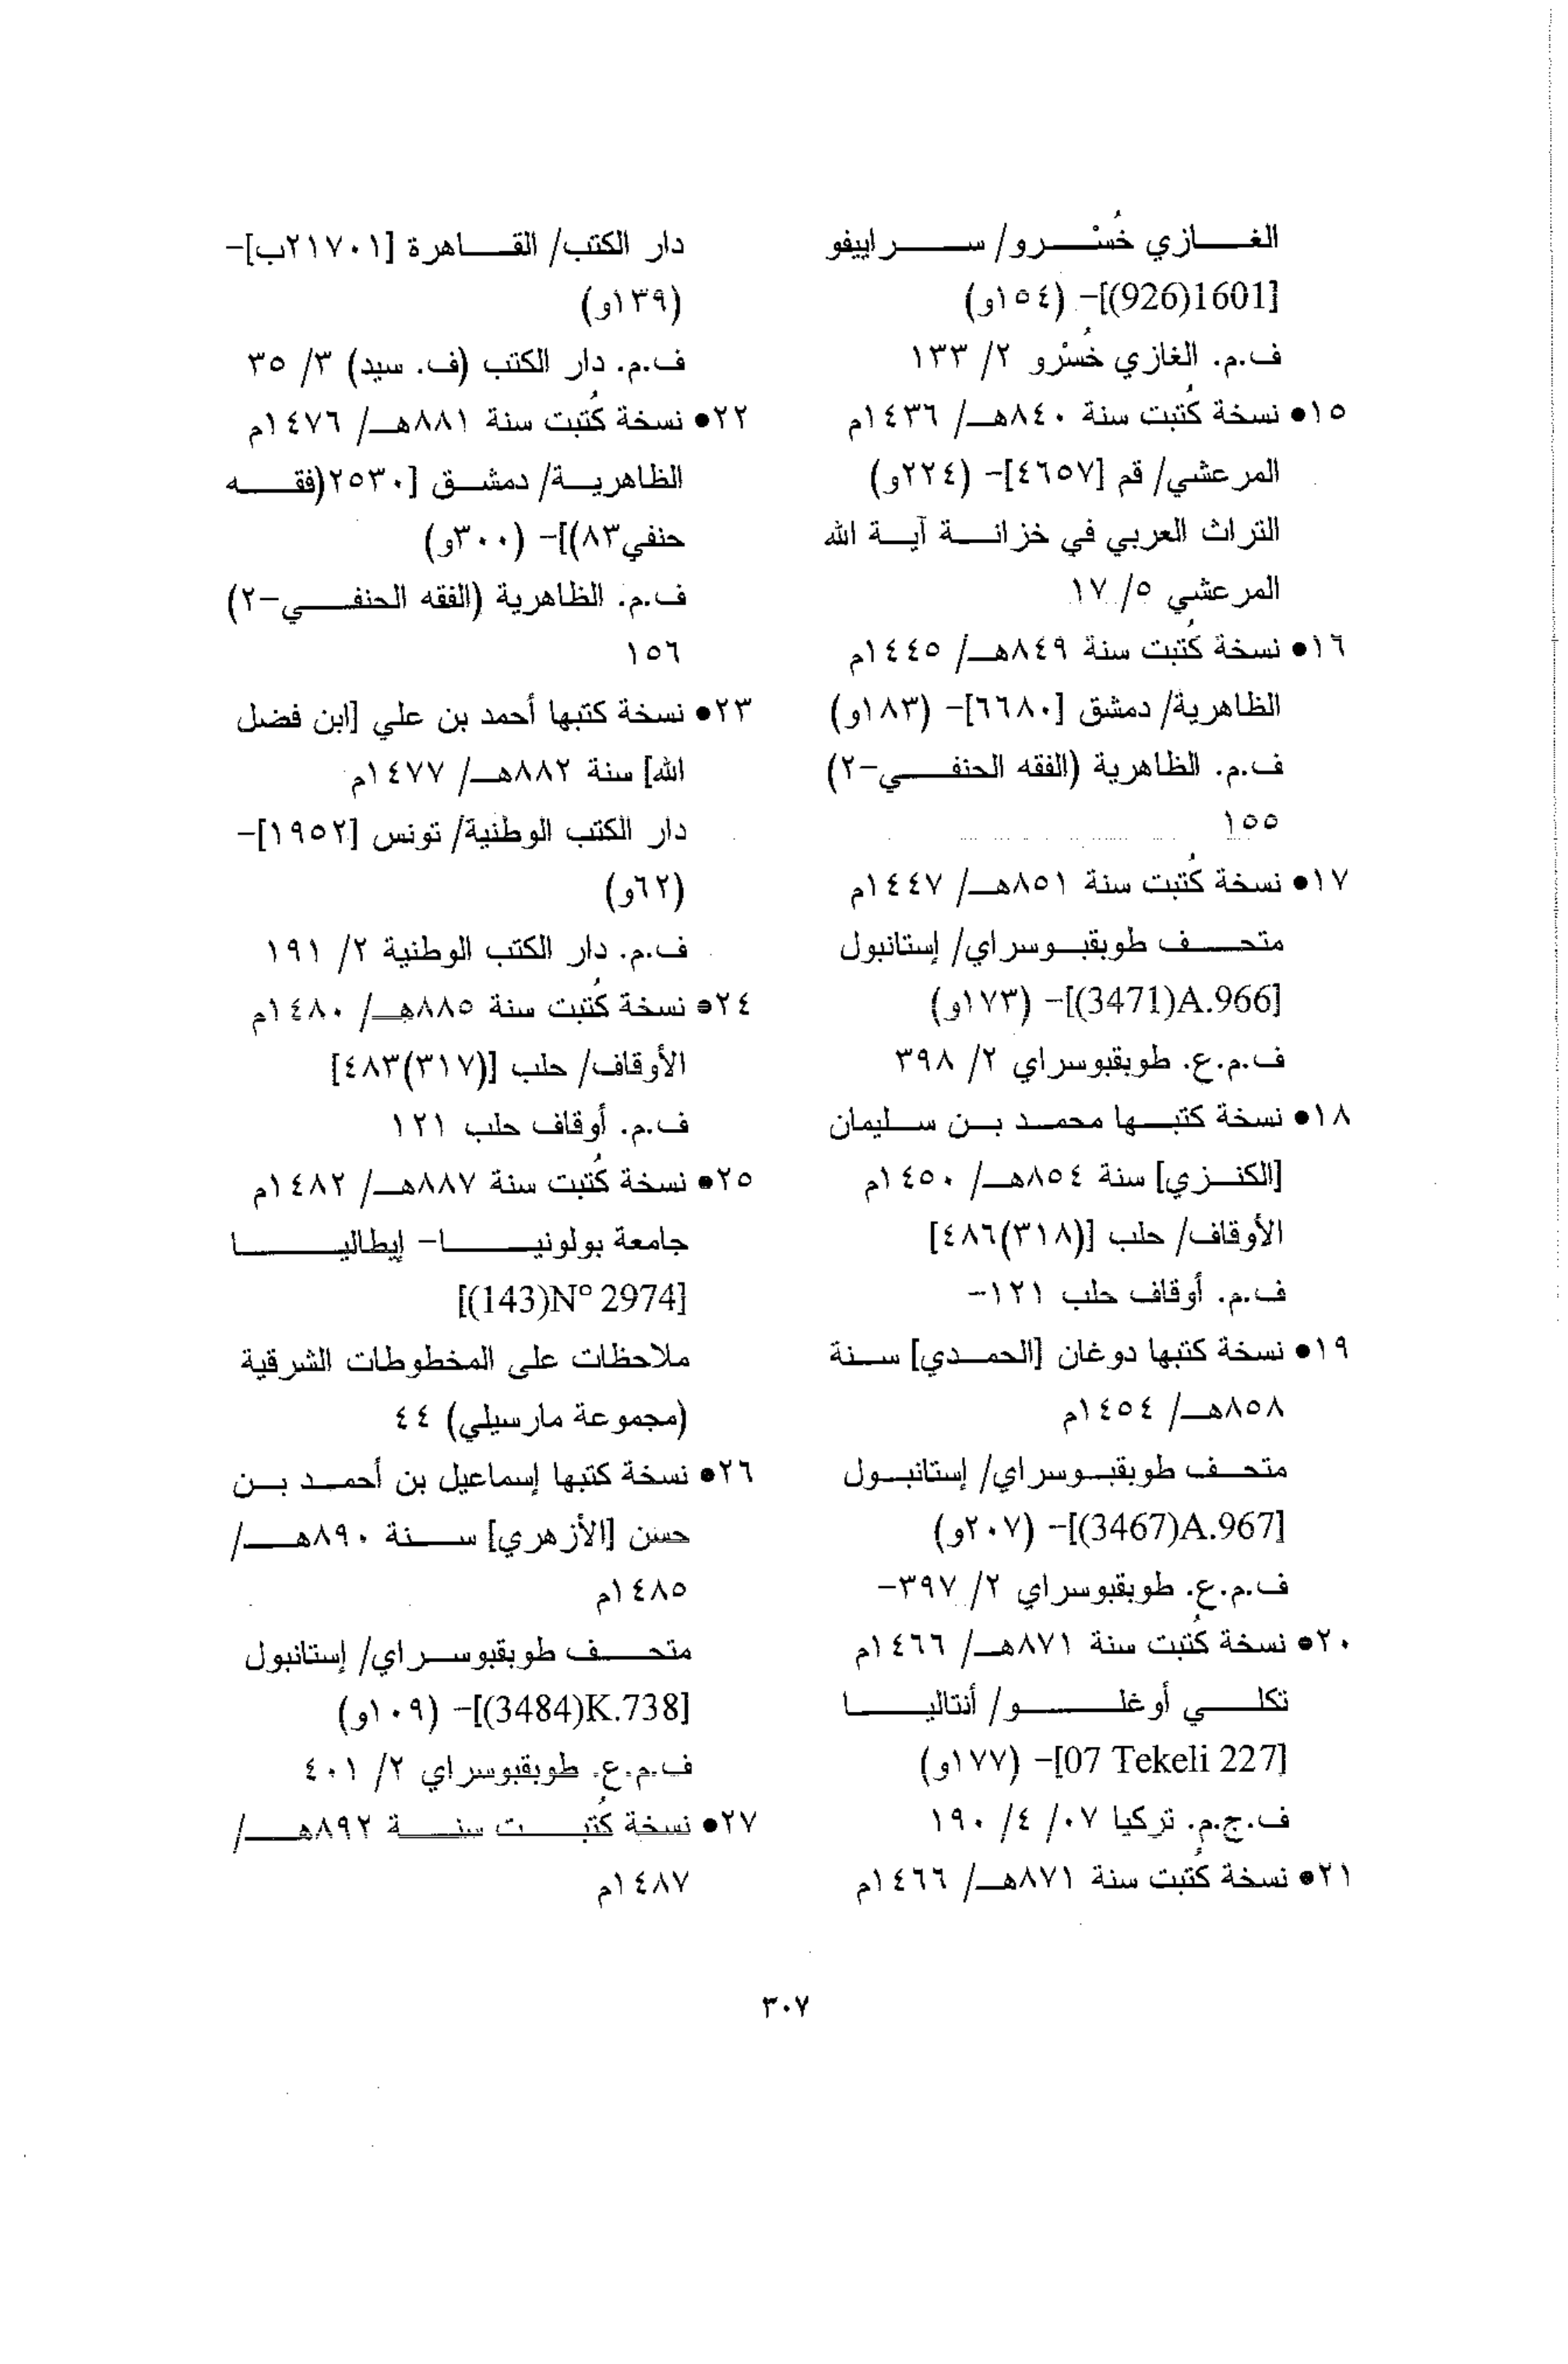 الغازي خُسْرو/ سراييفو
[1601(926)]- (١٥٤و)
ف.م. الغازي خُسْرو ٢/ ١٣٣
١٥● نسخة كُتبت سنة ٨٤٠هـ/ ١٤٣٦م
المرعشي/ قم [٤٦٥٧]- (٢٢٤و)
التراث العربي في خزانة آية الله
المرعشي ٥/ ١٧
١٦● نسخة كُتبت سنة ٨٤٩هـ/ ١٤٤٥م
الظاهرية/ دمشق [٦٦٨٠]- (١٨٣و)
ف.م. الظاهرية (الفقه الحنفي-٢)
١٥٥
١٧● نسخة كُتبت سنة ٨٥١هـ/ ١٤٤٧م
متحف طوبقبوسراي/ إستانبول
[A.966(3471)]- (١٧٣و)
ف.م.ع. طوبقبوسراي ٢/ ٣٩٨
١٨● نسخة كتبها محمد بن سليمان
[الكنزي] سنة ٨٥٤هـ/ ١٤٥٠م
الأوقاف/ حلب [(٣١٨)٤٨٦]
ف.م. أوقاف حلب ١٢١-
١٩● نسخة كتبها دوغان [الحمدي] سنة
٨٥٨هـ/ ١٤٥٤م
متحف طوبقبوسراي/ إستانبول
[A.967(3467)]- (٢٠٧و)
ف.م.ع. طوبقبوسراي ٢/ ٣٩٧-
٢٠● نسخة كُتبت سنة ٨٧١هـ/ ١٤٦٦م
تكلي أوغلو/ أنتاليا
[07 Tekeli 227]- (١٧٧و)
ف.ج.م. تركيا ٠٧/ ٤/ ١٩٠
٢١● نسخة كُتبت سنة ٨٧١هـ/ ١٤٦٦م
دار الكتب/ القاهرة [٢١٧٠١ب]-
(١٣٩و)
ف.م. دار الكتب (ف. سيد) ٣/ ٣٥
٢٢● نسخة كُتبت سنة ٨٨١هـ/ ١٤٧٦م
الظاهرية/ دمشق [٢٥٣٠(فقه
حنفي٨٣)]- (٣٠٠و)
ف.م. الظاهرية (الفقه الحنفي-٢)
١٥٦
٢٣● نسخة كتبها أحمد بن علي [ابن فضل
الله] سنة ٨٨٢هـ/ ١٤٧٧م
دار الكتب الوطنية/ تونس [١٩٥٢]-
(٦٢و)
ف.م. دار الكتب الوطنية ٢/ ١٩١
٢٤● نسخة كُتبت سنة ٨٨٥هـ/ ١٤٨٠م
الأوقاف/ حلب [(٣١٧)٤٨٣]
ف.م. أوقاف حلب ١٢١
٢٥● نسخة كُتبت سنة ٨٨٧هـ/ ١٤٨٢م
جامعة بولونيا- إيطاليا
[(143)N° 2974]
ملاحظات على المخطوطات الشرقية
(مجموعة مارسيلي) ٤٤
٢٦● نسخة كتبها إسماعيل بن أحمد بن
حسن [الأزهري] سنة ٨٩٠هـ/
١٤٨٥م
متحف طوبقبوسراي/ إستانبول
[K.738(3484)]- (١٠٩و)
ف.م.ع. طوبقبوسراي ٢/ ٤٠١
٢٧● نسخة كُتبت سنة ٨٩٢هـ/
١٤٨٧م
٣٠٧